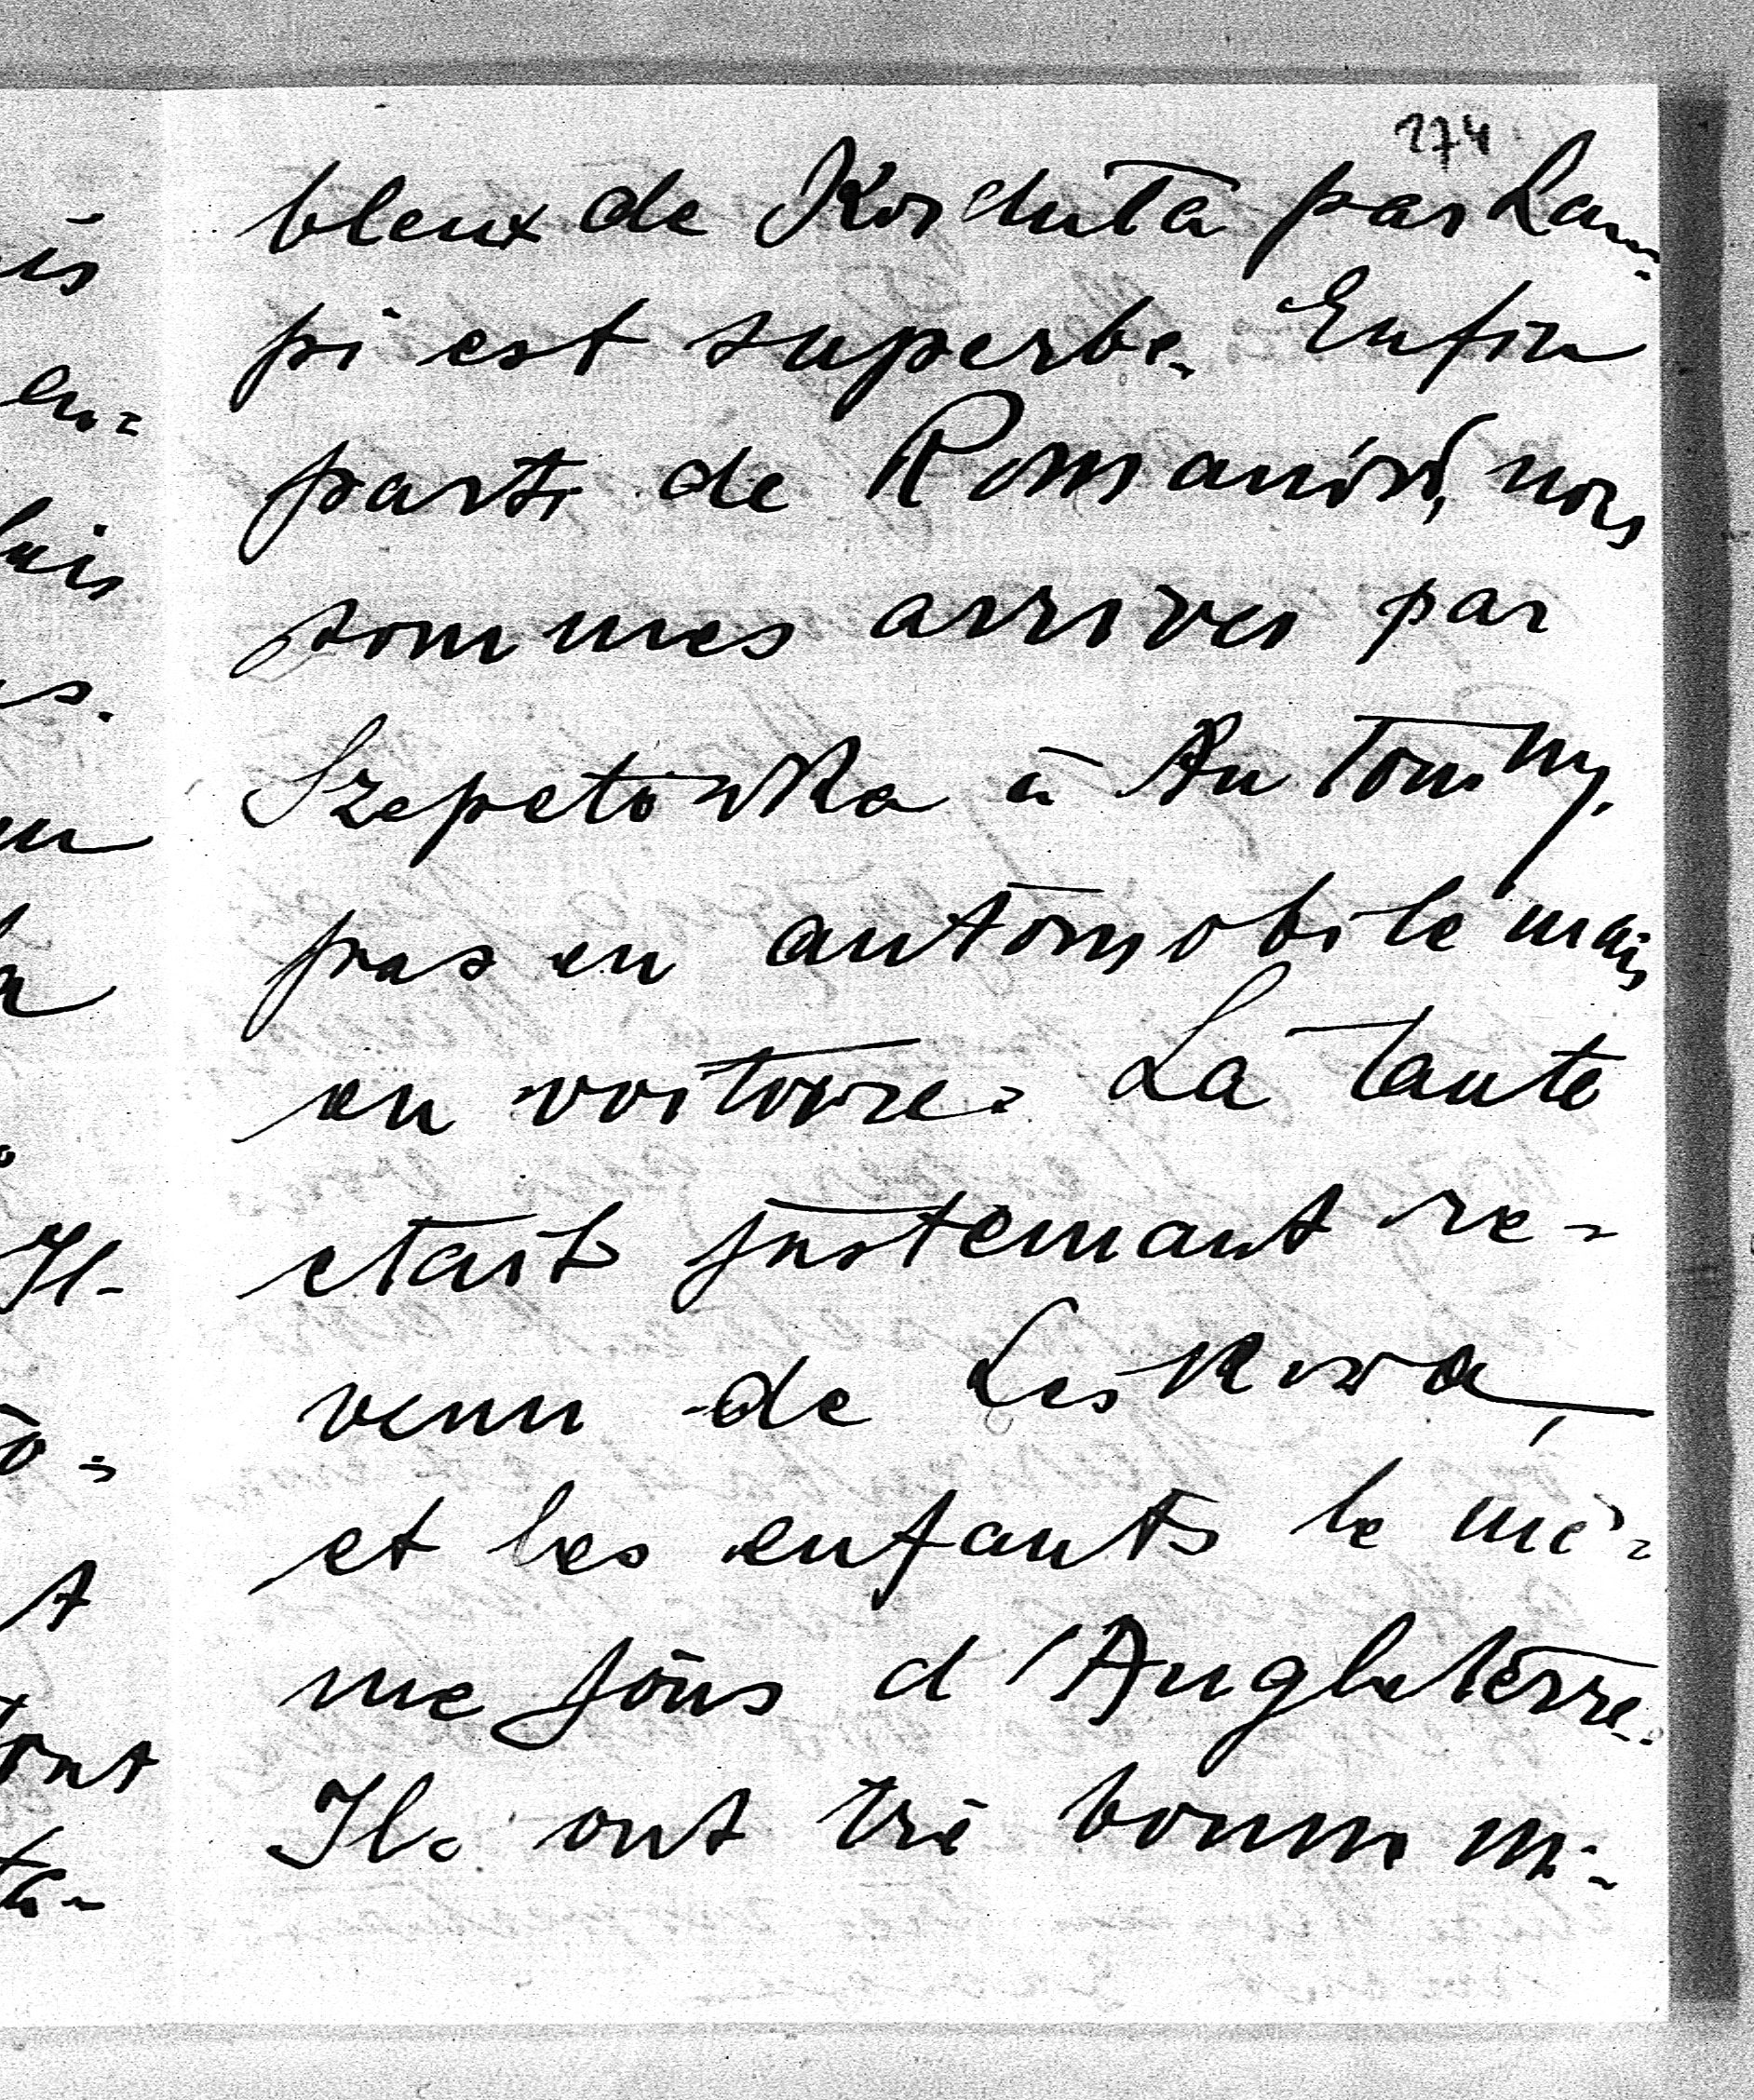 274
bleux de Korduta par Lam-
pi est superbe. Enfin
parti de Romanów, nous
sommes arrives par
Szepetówka à Antoniny,
pas en automobile mais
en voitoire. La tante
etait justemant re-
venu de Leskowa,
et les enfants le mê-
me jour d'Angleterre.
Ils ont trè bonne mi-